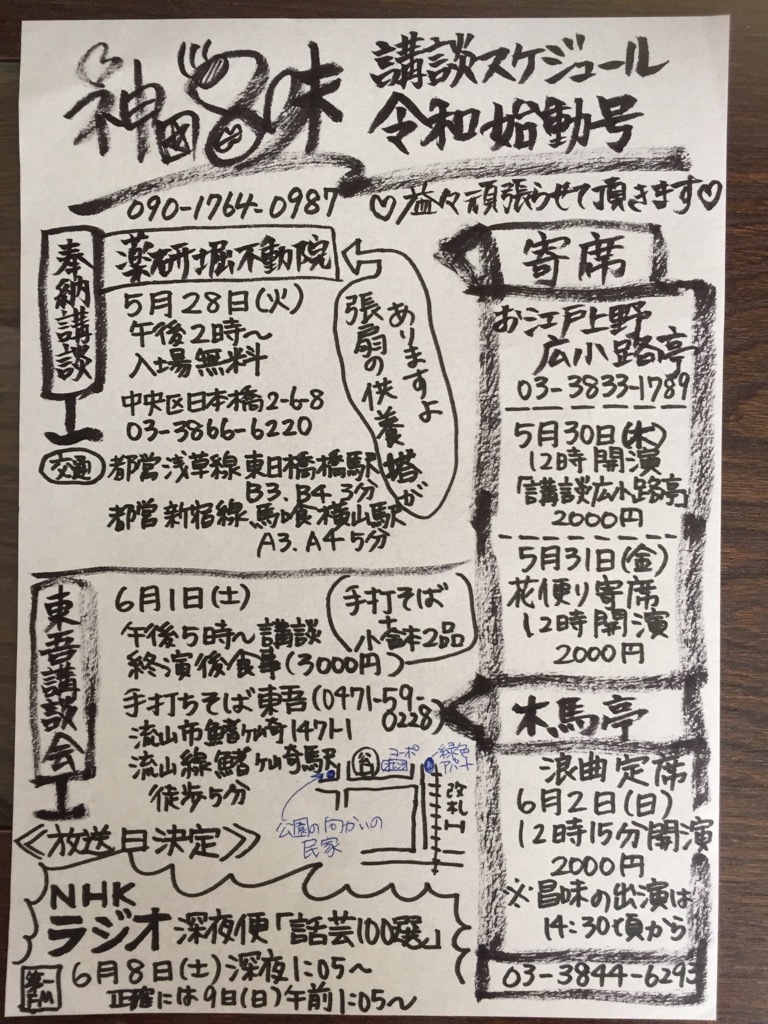 神田昌味
講談スケジュール
令和始動号
090-1764-0987
♡益々頑張らせて頂きます♡
奉納講談
薬研堀不動院
5月28日(火)
午後2時〜
入場無料
中央区日本橋2-6-8
03-3866-6220
ありますよ
張扇の供養塔が
交通
都営浅草線東日橋橋駅
B3.B4.3分
都営新宿線馬喰横山駅
A3.A4 5分
東吾講談会
6月1日(土)
午後5時〜講談
終演後食事(3000円)
手打そば
+
小鉢2品
手打ちそば東吾(0471-59-
0228)
流山市鰭ヶ崎1471-1
流山線鰭ヶ崎駅
徒歩5分
谷
コーポ
緑色
アパート
改札
公園の向かいの
民家
≪放送日決定≫
NHK
ラジオ深夜便「話芸100選」
第一
FM
6月8日(土)深夜1:05〜
正確には9日(日)午前1:05〜
寄席
お江戸上野
広小路亭
03-3833-1789
5月30日(木)
12時開演
「講談広小路亭」
2000円
5月31日(金)
花便り寄席
12時開演
2000円
木馬亭
浪曲定席
6月2日(日)
12時15分開演
2000円
※昌味の出演は
14:30頃から
03-3844-6293